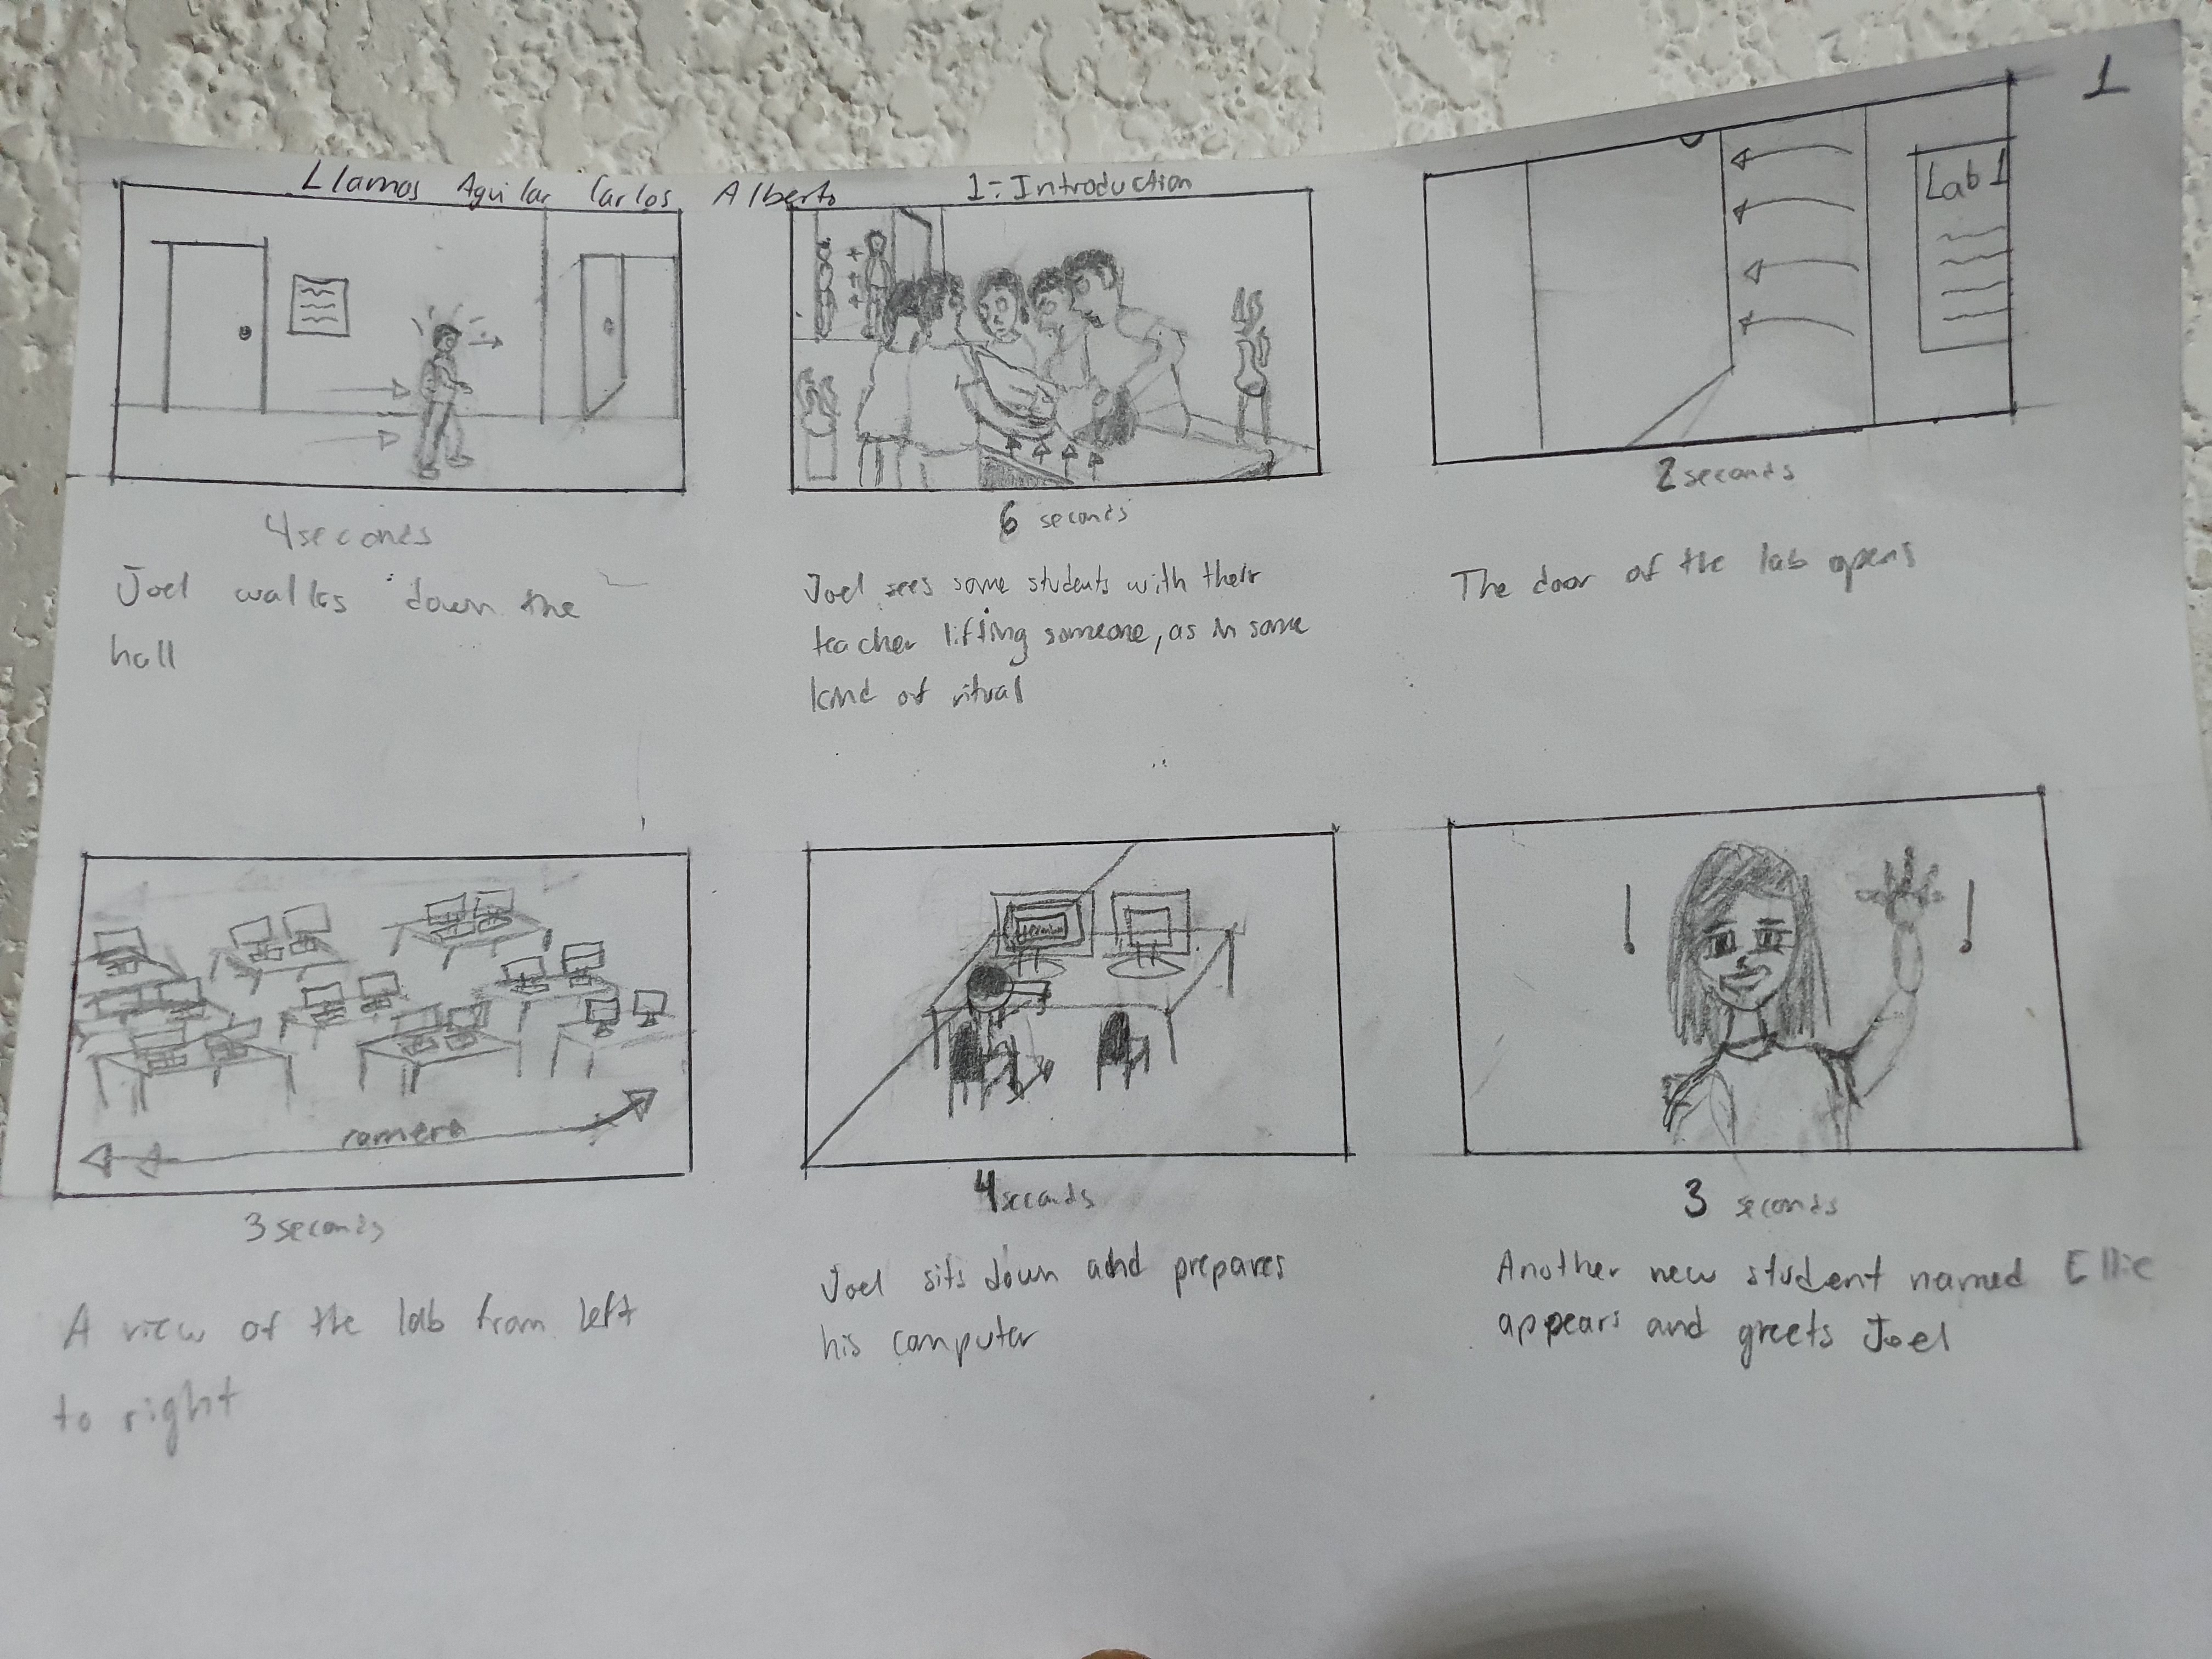 1
Llamas Aguilar Carlos Alberto 1: Introduction
Lab 1
4 seconds
Joel walks down the
hall
6 seconds
Joel sees some students with their
teacher lifting someone, as in some
kind of ritual
2 seconds
The door of the lab opens
camera
3 seconds
A view of the lab from left
to right
4 seconds
Joel sits down and prepares
his computer
! !
3 seconds
Another new student named Ellie
appears and greets Joel